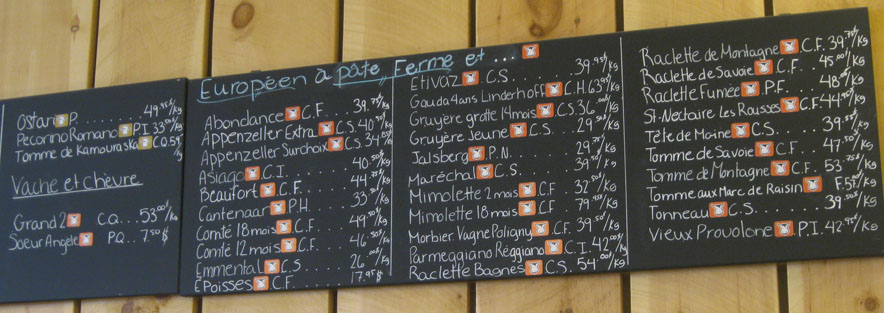 Ostari P. .... 49.95$/Kg
Pecorino Romano P.I. 33.00$/Kg
Tomme de Kamouraska C.Q. 59
Vache et chèvre
Grand 2 C.Q. ... 53.00$/Kg
Soeur Angèle P.Q. .. 7.50$
Européen à pâte Ferme et ...
Abondance C.F. 39.75$/Kg
Appenzeller Extra C.S. 40
Appenzeller Surchoix C.S. 34
Asiago C.I. ..... 40.50$/Kg
Beaufort C.F. .... 44.25$/Kg
Cantenaar P.H. 33 $/Kg
Comté 18 mois C.F. 49.50$/Kg
Comté 12 mois C.F. .. 46.50$/Kg
Emmental C.S. .... 26.00$/Kg
Époisses C.F. .... 17.95$
Etivaz C.S. ..... 39.95$/Kg
Gauda 4 ans Linderhoff C.H. 63.95$/Kg
Gruyère grotte 14 mois C.S. 36.00$/Kg
Gruyère Jeune C.S. ... 29.50$/Kg
Jalsberg P.N. ..... 29 $/Kg
Maréchal C.S. ..... 39 $/Kg
Mimolette 2 mois C.F. 32.50$/Kg
Mimolette 18 mois C.F. 79 $/Kg
Morbier Vagne Poligny C.F. 39.50$/Kg
Parmeggiano Réggiano C.I. 42.00$/Kg
Raclette Bagnes C.S. 54.00$/Kg
Raclette de Montagne C.F. 39.75$/Kg
Raclette de Savoie C.F. 45.00$/Kg
Raclette Fumée P.F. ... 48 $/Kg
St-Nectaire Les Rausses C.F. 44 $/Kg
Tête de Moine C.S. .... 39 $/Kg
Tomme de Savoie C.F. .. 47.50$/Kg
Tomme de Montagne C.F. 53.75$/Kg
Tomme aux Marc de Raisin F. 57 /Kg
Tonneau C.S. ..... 39.50$/Kg
Vieux Provolone P.I. 42.95$/Kg